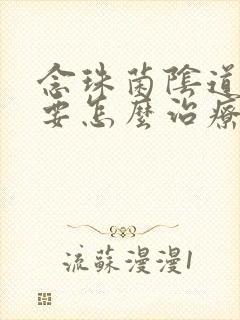 念珠菌陰道
要怎麼治療
流蘇漫漫1